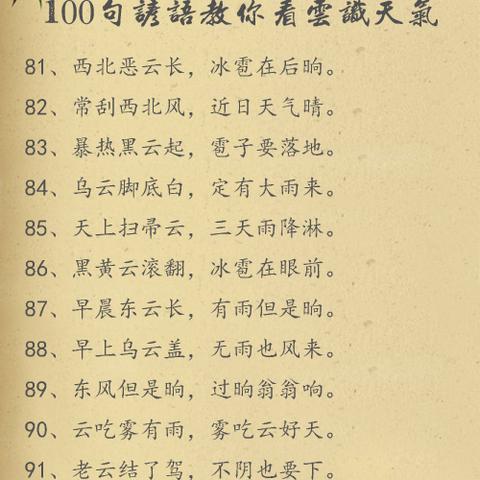 100句諺語教你看雲識天氣
81、西北恶云长，冰雹在后晌。
82、常刮西北风，近日天气晴。
83、暴热黑云起，雹子要落地。
84、乌云脚底白，定有大雨来。
85、天上扫帚云，三天雨降淋。
86、黑黄云滚翻，冰雹在眼前。
87、早晨东云长，有雨但是晌。
88、早上乌云盖，无雨也风来。
89、东风但是晌，过晌翁翁响。
90、云吃雾有雨，雾吃云好天。
91、老云结了驾，不阴也要下。